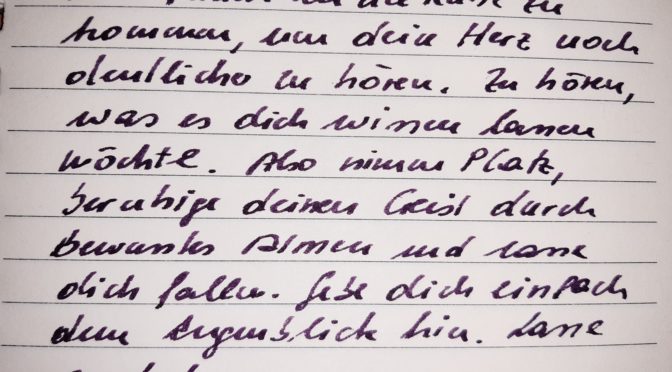 in die Ruhe zu
kommen, um dein Herz noch
deutlicher zu hören. Zu hören,
was es dich wissen lassen
möchte. Also nimm Platz,
beruhige deinen Geist durch
bewusstes Atmen und lasse
dich fallen. Gebe dich einfach
dem Augenblick hin. Lasse